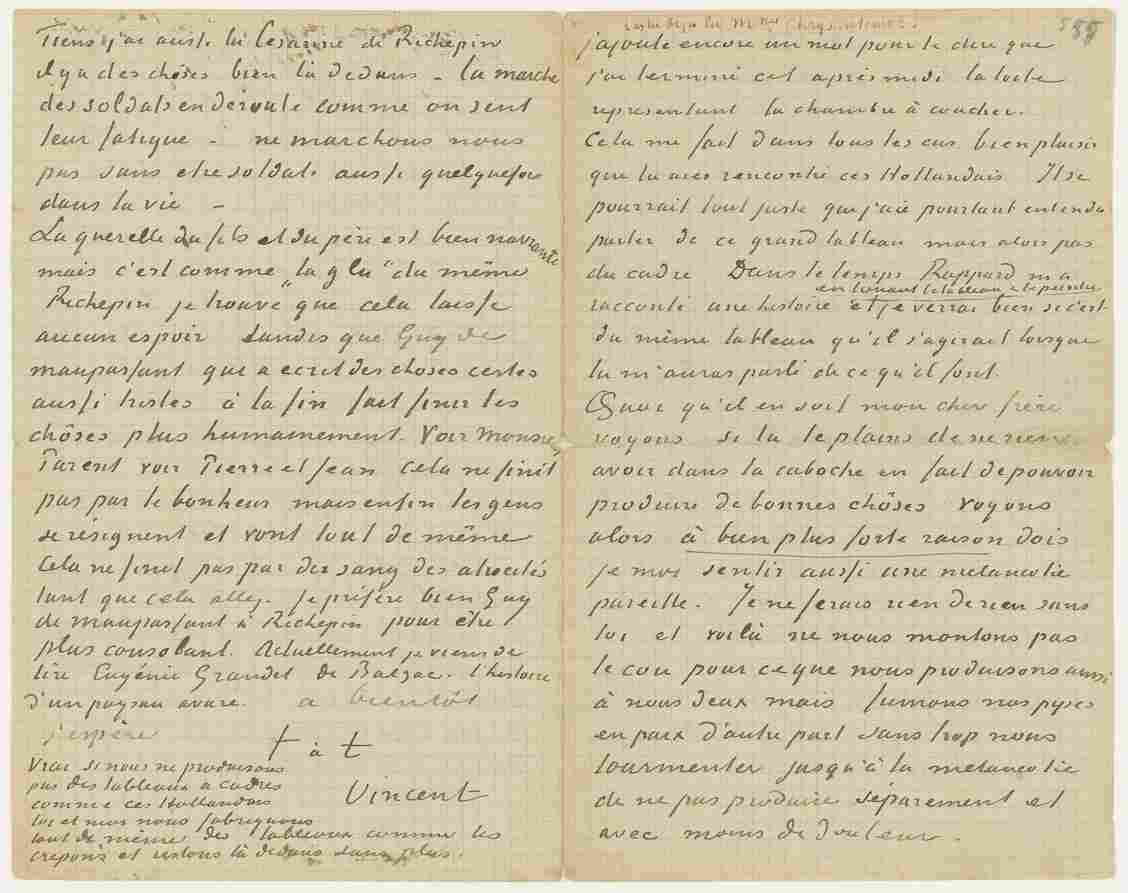 Tiens j'ai aussi lu Cesarine de Richepin
il y a des chôses bien là dedans – la marche
des soldats en deroute comme on sent
leur fatigue – ne marchons nous
pas sans etre soldats aussi quelquefois
dans la vie –
La querelle du fils et du père est bien navrante
mais c'est comme „la glu" du même
Richepin je trouve que cela laisse
aucun espoir tandis que Guy de
maupassant qui a ecrit des choses certes
aussi tristes à la fin fait finir les
chôses plus humainement. Voir Monsieur
Parent voir Pierre et Jean Cela ne finit
pas par le bonheur mais enfin les gens
se résignent et vont tout de même
Cela ne finit pas par du sang des atrocités
tant que cela allez. Je préfère bien Guy
de maupassant à Richepin pour être
plus consolant. Actuellement je viens de
lire Eugénie Grandet de Balzac. l'histoire
d'un paysan avare. a bientôt
j'espère
t à t
Vincent
Vrai si nous ne produisons
pas des tableaux a cadres
comme ces Hollandais
toi et moi nous fabriquons
tout de même des tableaux comme les
crepons et restons là dedans sans plus.
as tu deja lu Mme Chrysantème?
555
j'ajoute encore un mot pour te dire que
j'ai terminé cet après midi la toile
representant la chambre à coucher.
Cela me fait dans tous les cas bien plaisir
que tu aies rencontré ces Hollandais. Il se
pourrait tout juste que j'aie pourtant entendu
parler de ce grand tableau mais alors pas
du cadre Dans le temps Rappard m'a
en louant le tableau et le peintre
racconté une histoire et je verrai bien si c'est
du même tableau qu'il s'agirait lorsque
tu m'auras parlé de ce qu'il font.
Quoi qu'il en soit mon cher frère
voyons si tu te plains de ne rien
avoir dans la caboche en fait de pouvoir
produire de bonnes chôses voyons
alors à bien plus forte raison dois
je moi sentir aussi une melancolie
pareille. Je ne ferais rien de rien sans
toi et voilà ne nous montons pas
le cou pour ce que nous produisons ainsi
à nous deux mais fumons nos pipes
en paix d'autre part sans trop nous
tourmenter jusqu'à la melancolie
de ne pas produire séparement et
avec moins de douleur.